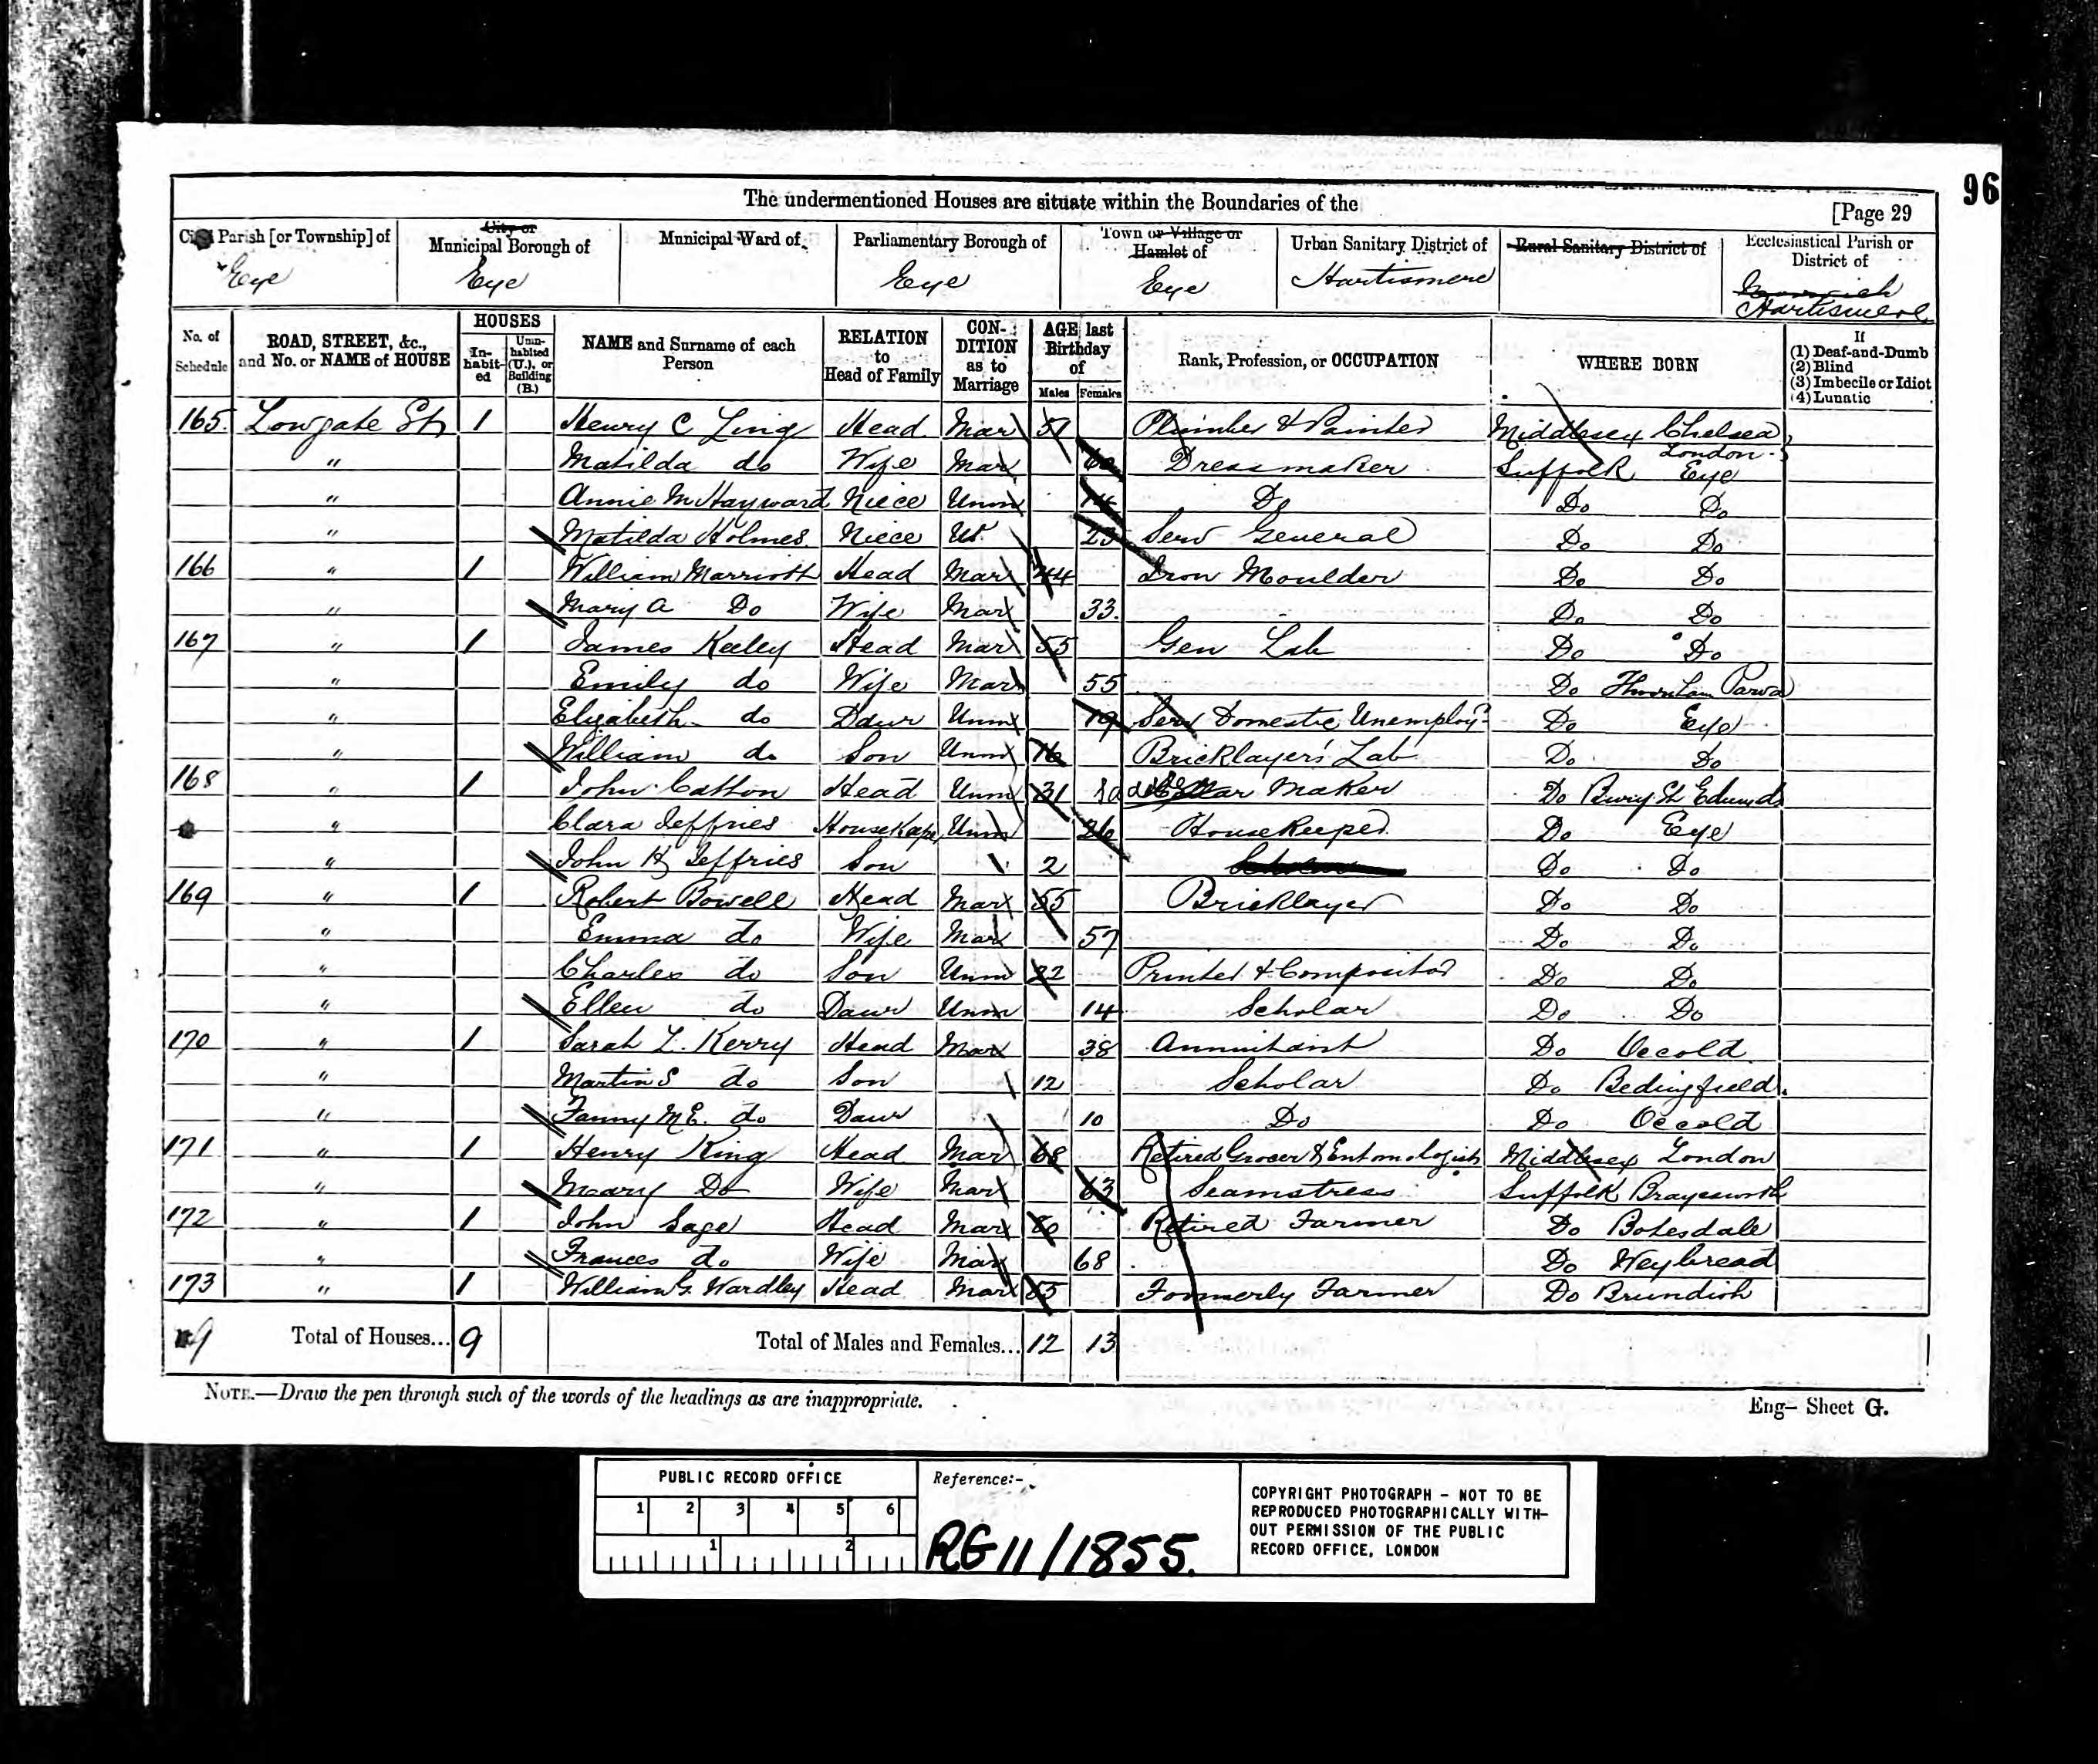 96
The undermentioned Houses are situate within the Boundaries of the
[Page 29
Civil Parish [or Township] of Eye
City or Municipal Borough of Eye
Municipal Ward of
Parliamentary Borough of Eye
Town or Village or Hamlet of Eye
Urban Sanitary District of Hartismere
Rural Sanitary District of
Ecclesiastical Parish or District of Norwich Hartismere
No. of Schedule
ROAD, STREET, &c., and No. or NAME of HOUSE
HOUSES
In-habit-ed
Unin-habited (U.), or Building (B.)
NAME and Surname of each Person
RELATION to Head of Family
CON-DITION as to Marriage
AGE last Birthday of
Males
Females
Rank, Profession, or OCCUPATION
WHERE BORN
If
(1) Deaf-and-Dumb
(2) Blind
(3) Imbecile or Idiot
(4) Lunatic
165 Lowgate St 1 Henry C Ling Head Mar 51 Plumber & Painter Middlesex Chelsea London
" Matilda do Wife Mar 60 Dressmaker Suffolk Eye
" Annie M Hayward Niece Unm 14 Do Do Do
" Matilda Holmes Niece 23 Serv General Do Do
166 " 1 William Marriott Head Mar 44 Iron Moulder Do Do
" Mary A Do Wife Mar 33 Do Do
167 " 1 James Keeley Head Mar 55 Gen Lab Do Do
" Emily do Wife Mar 55 Do Thornham Parva
" Elizabeth do Daur Unm 19 Serv Domestic Unemployd Do Eye
" William do Son Unm 16 Bricklayer's Lab Do Do
168 " 1 John Catton Head Unm 31 Maker Do Bury St Edmunds
" Clara Jeffries Housekeper Unm 26 Housekeeper Do Eye
" John H Jeffries Son 2 Scholar Do Do
169 " 1 Robert Bowell Head Mar 55 Bricklayer Do Do
" Emma do Wife Mar 57 Do Do
" Charles do Son Unm 22 Printer & Compositor Do Do
" Ellen do Daur Unm 14 Scholar Do Do
170 " 1 Sarah L. Kerry Head Mar 38 Annuitant Do Occold
" Martin S do Son 12 Scholar Do Bedingfield
" Fanny M E. do Daur 10 Do Do Occold
171 " 1 Henry King Head Mar 68 Retired Grocer & Entomologist Middlesex London
" Mary Do Wife Mar 63 Seamstress Suffolk Brayesworth
172 " 1 John Sage Head Mar 80 Retired Farmer Do Botesdale
" Frances do Wife Mar 68 Do Weybread
173 " 1 William G. Wardley Head Mar 55 Formerly Farmer Do Brundish
9 Total of Houses... 9 Total of Males and Females... 12 13
NOTE.—Draw the pen through such of the words of the headings as are inappropriate.
Eng— Sheet G.
PUBLIC RECORD OFFICE
1 2 3 4 5 6
1 2
Reference:-
RG 11/1855.
COPYRIGHT PHOTOGRAPH - NOT TO BE
REPRODUCED PHOTOGRAPHICALLY WITH-
OUT PERMISSION OF THE PUBLIC
RECORD OFFICE, LONDON